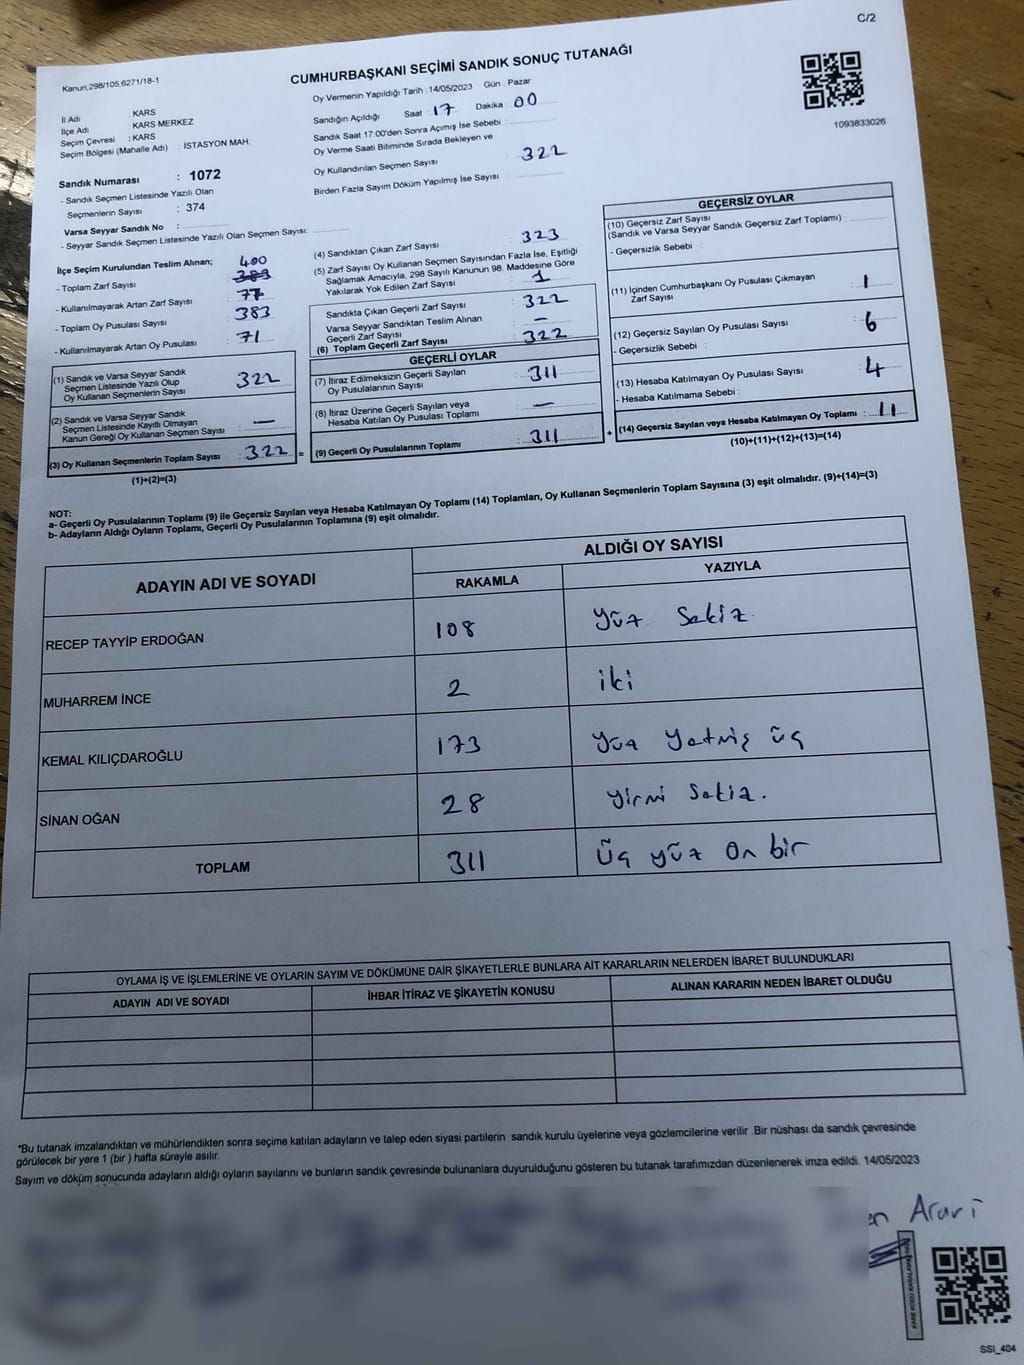 C/2
Kanun,298/105,6271/18-1
CUMHURBAŞKANI SEÇİMİ SANDIK SONUÇ TUTANAĞI
1093833026
İl Adı : KARS
İlçe Adı : KARS MERKEZ
Seçim Çevresi : KARS
Seçim Bölgesi (Mahalle Adı) : İSTASYON MAH.
Oy Vermenin Yapıldığı Tarih :14/05/2023 Gün : Pazar
Sandığın Açıldığı Saat : 17 Dakika : 00
Sandık Saat 17:00'den Sonra Açımış İse Sebebi :
Oy Verme Saati Bitiminde Sırada Bekleyen ve
Oy Kullandırılan Seçmen Sayısı : 322
Birden Fazla Sayım Döküm Yapılmış İse Sayısı :
Sandık Numarası : 1072
- Sandık Seçmen Listesinde Yazılı Olan
Seçmenlerin Sayısı : 374
Varsa Seyyar Sandık No :
- Seyyar Sandık Seçmen Listesinde Yazılı Olan Seçmen Sayısı:
İlçe Seçim Kurulundan Teslim Alınan;
- Toplam Zarf Sayısı : 400
- Kullanılmayarak Artan Zarf Sayısı : 77
- Toplam Oy Pusulası Sayısı : 383
- Kullanılmayarak Artan Oy Pusulası : 71
(1) Sandık ve Varsa Seyyar Sandık
Seçmen Listesinde Yazılı Olup
Oy Kullanan Seçmenlerin Sayısı : 322
(2) Sandık ve Varsa Seyyar Sandık
Seçmen Listesinde Kayıtlı Olmayan
Kanun Gereği Oy Kullanan Seçmen Sayısı : —
(3) Oy Kullanan Seçmenlerin Toplam Sayısı : 322 =
(1)+(2)=(3)
(4) Sandıktan Çıkan Zarf Sayısı : 323
(5) Zarf Sayısı Oy Kullanan Seçmen Sayısından Fazla İse, Eşitliği
Sağlamak Amacıyla, 298 Sayılı Kanunun 98. Maddesine Göre
Yakılarak Yok Edilen Zarf Sayısı : 1
Sandıkta Çıkan Geçerli Zarf Sayısı : 322
Varsa Seyyar Sandıktan Teslim Alınan
Geçerli Zarf Sayısı : —
(6) Toplam Geçerli Zarf Sayısı : 322
GEÇERLİ OYLAR
(7) İtiraz Edilmeksizin Geçerli Sayılan
Oy Pusulalarının Sayısı : 311
(8) İtiraz Üzerine Geçerli Sayılan veya
Hesaba Katılan Oy Pusulası Toplamı : —
(9) Geçerli Oy Pusulalarının Toplamı : 311 +
GEÇERSİZ OYLAR
(10) Geçersiz Zarf Sayısı
(Sandık ve Varsa Seyyar Sandık Geçersiz Zarf Toplamı) :
- Geçersizlik Sebebi :
(11) İçinden Cumhurbaşkanı Oy Pusulası Çıkmayan
Zarf Sayısı : 1
(12) Geçersiz Sayılan Oy Pusulası Sayısı : 6
- Geçersizlik Sebebi :
(13) Hesaba Katılmayan Oy Pusulası Sayısı : 4
- Hesaba Katılmama Sebebi :
(14) Geçersiz Sayılan veya Hesaba Katılmayan Oy Toplamı : 11
(10)+(11)+(12)+(13)=(14)
NOT:
a- Geçerli Oy Pusulalarının Toplamı (9) ile Geçersiz Sayılan veya Hesaba Katılmayan Oy Toplamı (14) Toplamları, Oy Kullanan Seçmenlerin Toplam Sayısına (3) eşit olmalıdır. (9)+(14)=(3)
b- Adayların Aldığı Oyların Toplamı, Geçerli Oy Pusulalarının Toplamına (9) eşit olmalıdır.
ADAYIN ADI VE SOYADI
ALDIĞI OY SAYISI
RAKAMLA YAZIYLA
RECEP TAYYİP ERDOĞAN 108 Yüz Sekiz.
MUHARREM İNCE 2 iki
KEMAL KILIÇDAROĞLU 173 Yüz Yetmiş üç
SİNAN OĞAN 28 yirmi Sekiz.
TOPLAM 311 Üç yüz On bir
OYLAMA İŞ VE İŞLEMLERİNE VE OYLARIN SAYIM VE DÖKÜMÜNE DAİR ŞİKAYETLERLE BUNLARA AİT KARARLARIN NELERDEN İBARET BULUNDUKLARI
ADAYIN ADI VE SOYADI İHBAR İTİRAZ VE ŞİKAYETİN KONUSU ALINAN KARARIN NEDEN İBARET OLDUĞU
*Bu tutanak imzalandıktan ve mühürlendikten sonra seçime katılan adayların ve talep eden siyasi partilerin sandık kurulu üyelerine veya gözlemcilerine verilir .Bir nüshası da sandık çevresinde
görülecek bir yere 1 (bir ) hafta süreyle asılır.
Sayım ve döküm sonucunda adayların aldığı oyların sayılarını ve bunların sandık çevresinde bulunanlara duyurulduğunu gösteren bu tutanak tarafımızdan düzenlenerek imza edildi. 14/05/2023
SSI_404